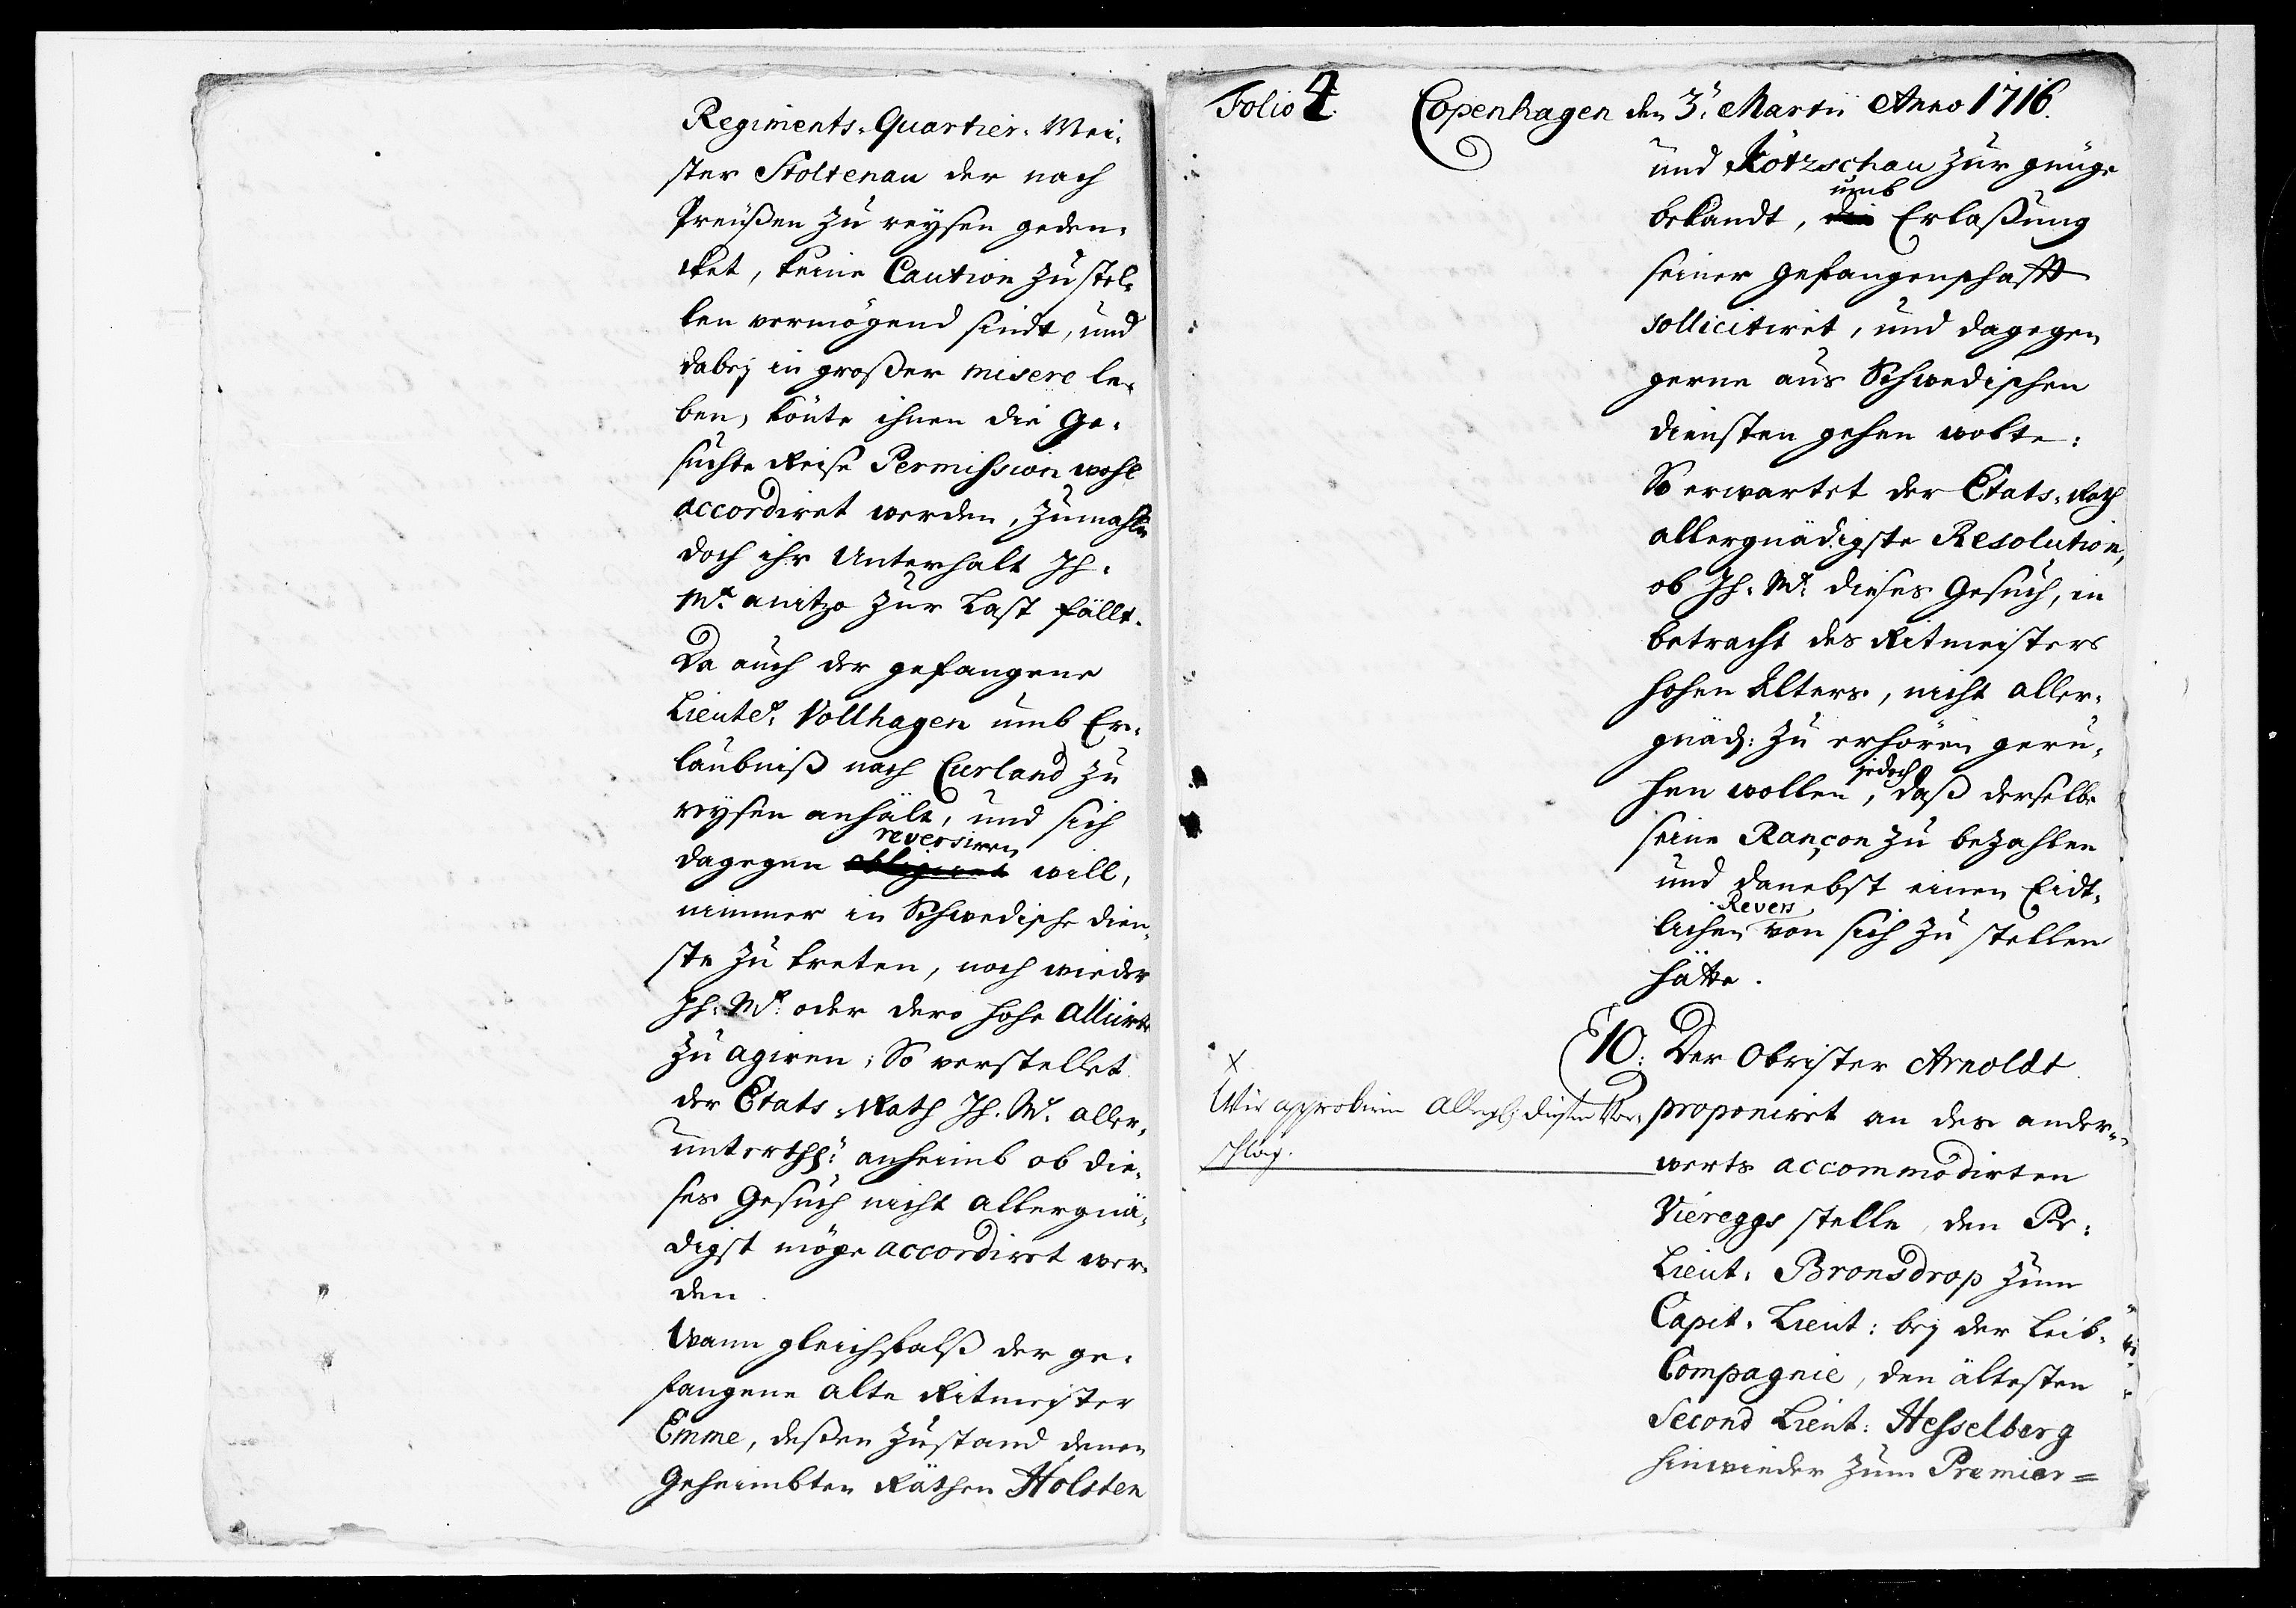 Regiments-Quartier-Mei-
ster Stoltenau der nach
Preußen zu reysen geden-
ket, keine Caution zu stel-
len vermögend sindt, und
dabej in großer misere le-
ben, könte ihnen die Ge-
suchte Reise Permission wohl
accordiret werden, zumahln
doch ihr Unterhalt Ih.
Mt. anitzo zur Last fällt.
Da auch der gefangene
Lieutet. Vollhagen umb Er-
läubniß nach Curland zu
reysen anhält, und sich
reversiren
dagegen obligiret will,
nimmer in Schwedische Dien-
ste zu treten, noch wieder
Ih: Mt. oder dero hohe Alliirte
zu agiren; So verstellet
der Etats-Rath Ih. Mt. aller-
unterthgst: anheimb ob die-
ses Gesuch nicht allergnä-
digst möge accordiret wer-
den.
Wann gleichfalß der ge-
fangene alte Ritmeister
Emme, deßen Zustand denen
Geheimbten Räthen Holsten
Folio 4.
Copenhagen den 3t. Martii Anno 1716.
und Kötzschau zur gnüge
umb
bekandt, die Erlaßung
seiner Gefangenschafft
sollicitiret, und dagegen
gerne aus Schwedischen
Diensten gehen wolte:
So erwartet der Etats-Rath
allergnädigste Resolution,
ob Ih. Mt. dieses Gesuch, in
betracht des Ritmeisters
hohen Alters, nicht aller-
gnäd: zu erhören geru-
jedoch
hen wollen, daß derselbe
seine Rançon zu bezahlen
und danebst einen Eidt-
Revers
lichen von sich zu stellen
hätte.
10: Der Obrister Arnoldt
proponiret an des ander-
werts accommodirten
Viereggs stelle, den Pr:
Lieut: Bronsdrop zum
Capit. Lieut: bej der Leib-
Compagnie, den ältesten
Second Lieut: Hesselberg
hinwieder zum Premier=
x
Wir approbiren allergl: diesen Vor-
schlag.